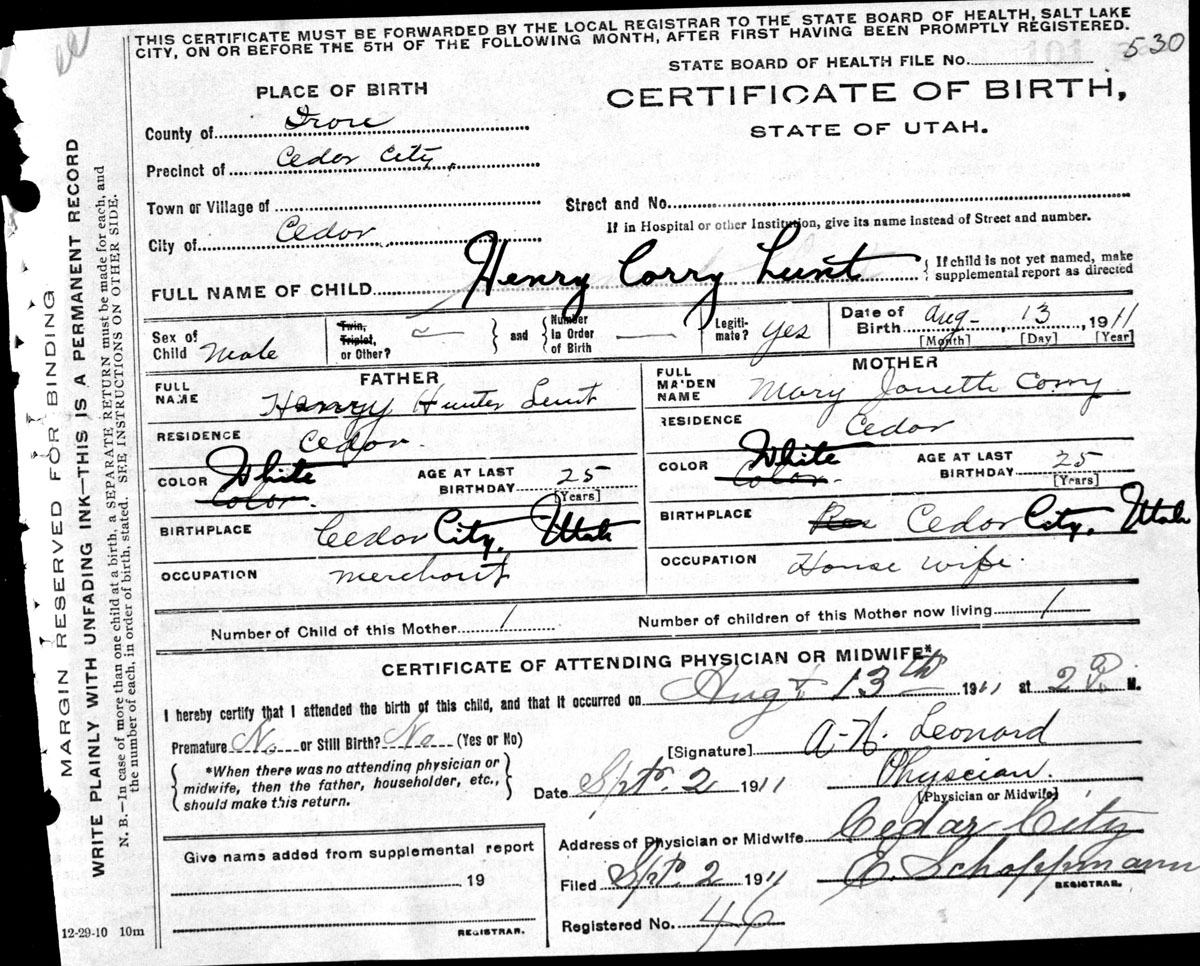 THIS CERTIFICATE MUST BE FORWARDED BY THE LOCAL REGISTRAR TO THE STATE BOARD OF HEALTH, SALT LAKE
CITY, ON OR BEFORE THE 5TH OF THE FOLLOWING MONTH, AFTER FIRST HAVING BEEN PROMPTLY REGISTERED.
530
STATE BOARD OF HEALTH FILE No.
PLACE OF BIRTH
CERTIFICATE OF BIRTH,
STATE OF UTAH.
County of Iron
Precinct of Cedar City,
Town or Village of
Street and No.
If in Hospital or other Institution, give its name instead of Street and number.
City of Cedar
FULL NAME OF CHILD Henry Corry Lunt
{ If child is not yet named, make
supplemental report as directed
Sex of
Child Male
Twin,
Triplet,
or Other?
} and { Number
in Order
of Birth
Legiti-
mate? Yes
Date of
Birth Aug- 13, 1911
[Month] [Day] [Year]
FATHER
FULL
NAME Henry Hunter Lunt
RESIDENCE Cedar.
COLOR White
Color.
AGE AT LAST
BIRTHDAY 25
[Years]
BIRTHPLACE Cedar City, Utah
OCCUPATION Merchant
MOTHER
FULL
MAIDEN
NAME Mary Janette Corry
RESIDENCE Cedar
COLOR White
Color.
AGE AT LAST
BIRTHDAY 25
[Years]
BIRTHPLACE Cedar City, Utah
OCCUPATION House wife
Number of Child of this Mother 1
Number of children of this Mother now living 1
CERTIFICATE OF ATTENDING PHYSICIAN OR MIDWIFE*
I hereby certify that I attended the birth of this child, and that it occurred on Augt 13th 1911 at 2 P. M.
Premature No or Still Birth? No (Yes or No)
{ *When there was no attending physician or
midwife, then the father, householder, etc.,
should make this return. }
[Signature] A-N. Leonard
Date Spt. 2 1911
Physcian.
[Physician or Midwife]
Address of Physician or Midwife Cedar City
Give name added from supplemental report
19
REGISTRAR.
Filed Spt. 2 1911
E. Schoppmann
REGISTRAR.
Registered No. 46
12-29-10 10m
MARGIN RESERVED FOR BINDING
WRITE PLAINLY WITH UNFADING INK—THIS IS A PERMANENT RECORD
N. B.—In case of more than one child at a birth, a SEPARATE RETURN must be made for each, and
the number of each, in order of birth, stated. SEE INSTRUCTIONS ON OTHER SIDE.